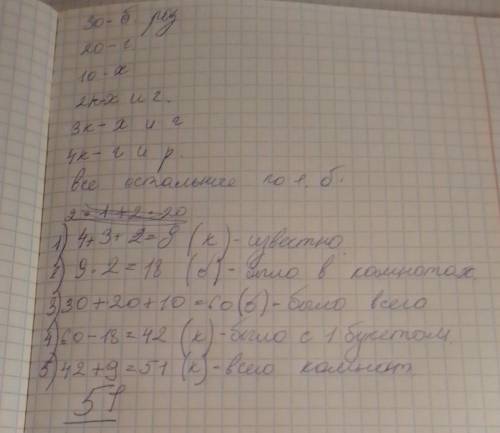 30-б роз
20-г
10-х
2к-х и г.
3к-х и г
4к-г и р
все остальные по 1. б.
1) 4+3+2=9 (к) - известно.
2) 9·2=18 (б) - было в комнатах
3) 30+20+10=60 (б) - было всего
4) 60-18=42 (к) - было с 1 букетом.
5) 42+9=51 (к) - всего комнат
51